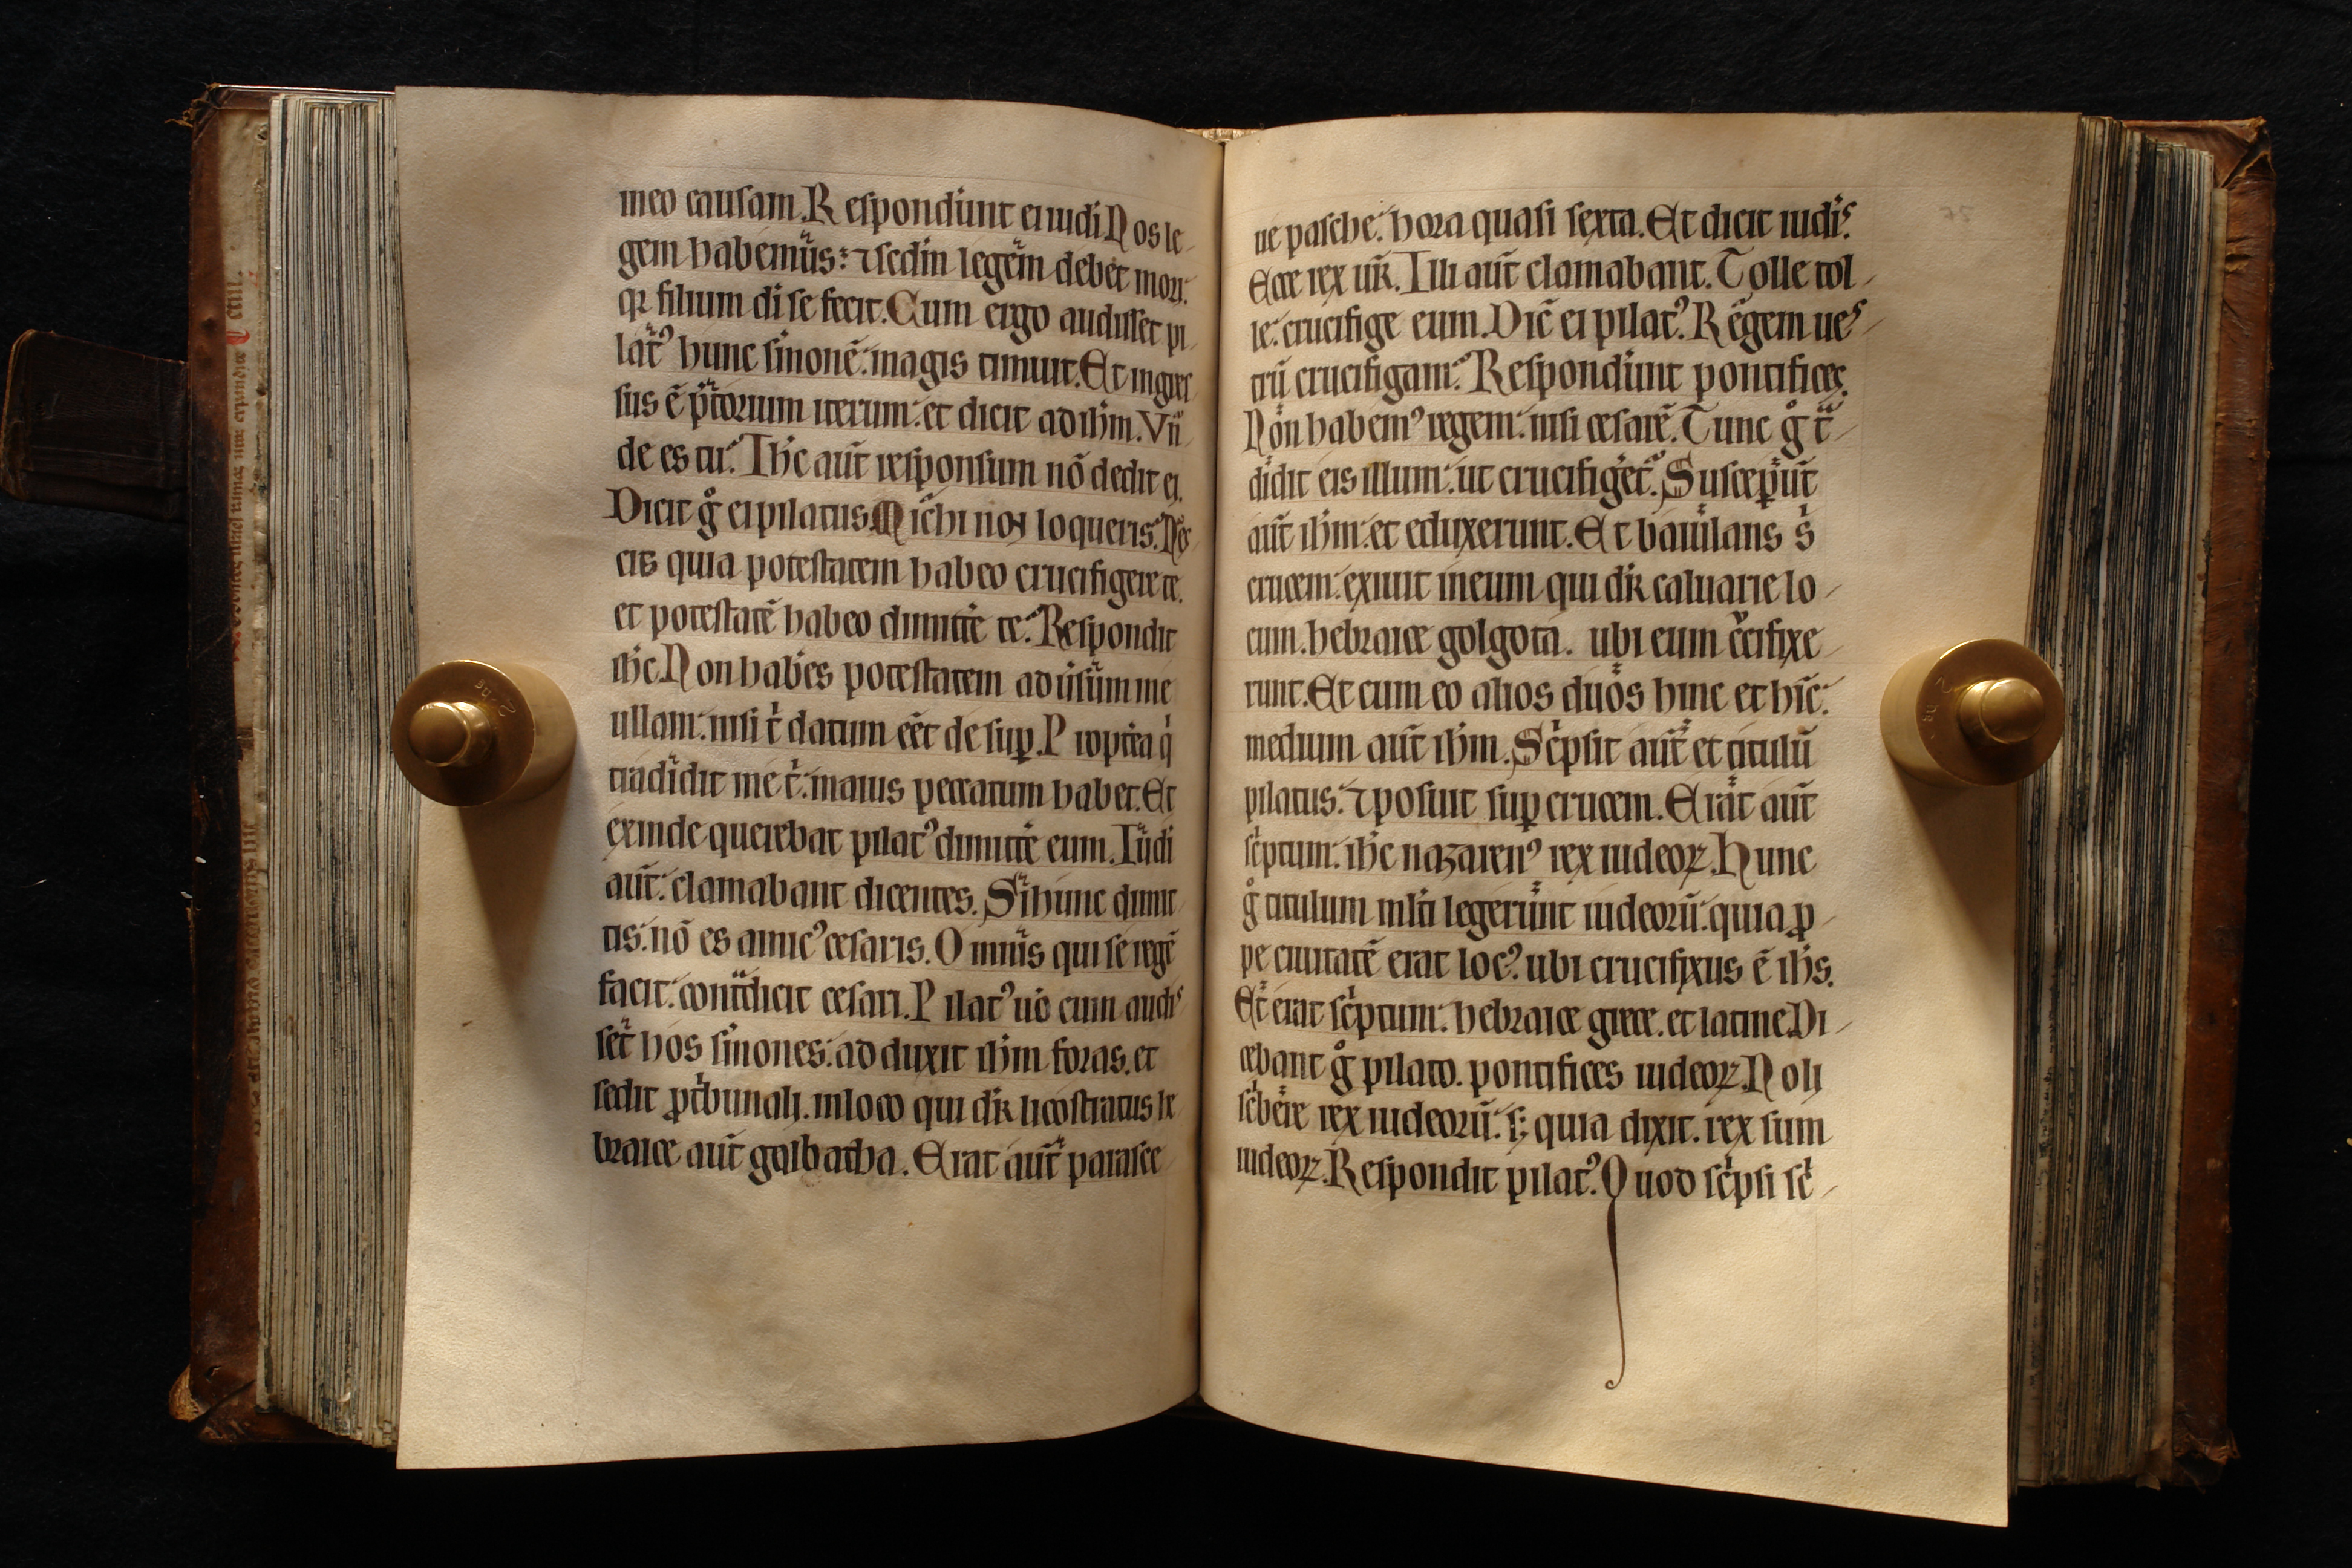 meo causam. Respondiunt ei iudi Nos le-
gem habemus: ⁊ sedin legem debet mori.
qꝛ filium di se fecit. Cum ergo audisset pi-
lat᾽ hunc simonē. magis timuit. Et ingres
sus ē p̄torium iterum. et dicit ad ihm. Vn̄-
de es tu? Ihc aut̄ responsum nō dedit ei.
Dicit g̊ ei pilatus Michi non loqueris? Nes
cis quia potestatem habeo crucifigere te.
et potestatē habeo dimitt̄e te? Respondit
ihc. Non habes potestatem adusum me
ullam. nisi t̄ datum eēt de suꝑ. Propt̄ea q̇
tradidit me t̄. maius peccatum habet. Et
exinde querebat pilat᾽ dimitt̄e eum. Iudi
aut̄. clamabant dicentes. Si hunc dimit
tis. nō es amic᾽ cesaris. Omnis qui se regē
facit. cont̄dicit cesari. Pilat᾽ uō cum audis
set hos simones. adduxit ihm foras. et
sedit ꝓ t̄bunali. inloco qui dr̄ licostratus he
braice aut̄ golbatha. Erat aut̄ parasce
ue pasche. hora quasi sexta. Et dicit iudis.
Ecce rex ur̄. Illi aut̄ clamabant. Tolle tol-
le. crucifige eum. Dic̄ ei pilat᾽. Regem ues-
trū crucifigam? Respondiunt pontifices.
Non habem᾽ regem. nisi cesarē. Tunc g̊ t̄-
didit eis illum. ut crucifiget̄. Suscep̄ut̄
aut̄ ihm. et eduxerunt. Et baiulans s̄
crucem. exiuit ineum qui dr̄ caluarie lo-
cum. hebraice golgota. ubi eum c̄cifixe-
runt. Et cum eo alios duos hinc et hīc.
medium aut̄ ihm. Sc̄psit aut̄ et titulū
pilatus. ⁊ posuit suꝑ crucem. Erat aut̄
sc̄ptum. ihc nazaren᾽ rex iudeoꝝ. Hunc
g̊ titulum ml̄ti legerunt iudeorū. quia ꝓ-
pe ciuitatē erat loc᾽. ubi crucifixus ē ihs.
Et erat sc̄ptum. hebraice grece. et latine. Di-
cebant g̊ pilato. pontifices iudeoꝝ. Noli
sc̄bere rex iudeorū. sꝫ quia dixit. rex sum
iudeoꝝ. Respondit pilat᾽. Quod sc̄psi sc̄-